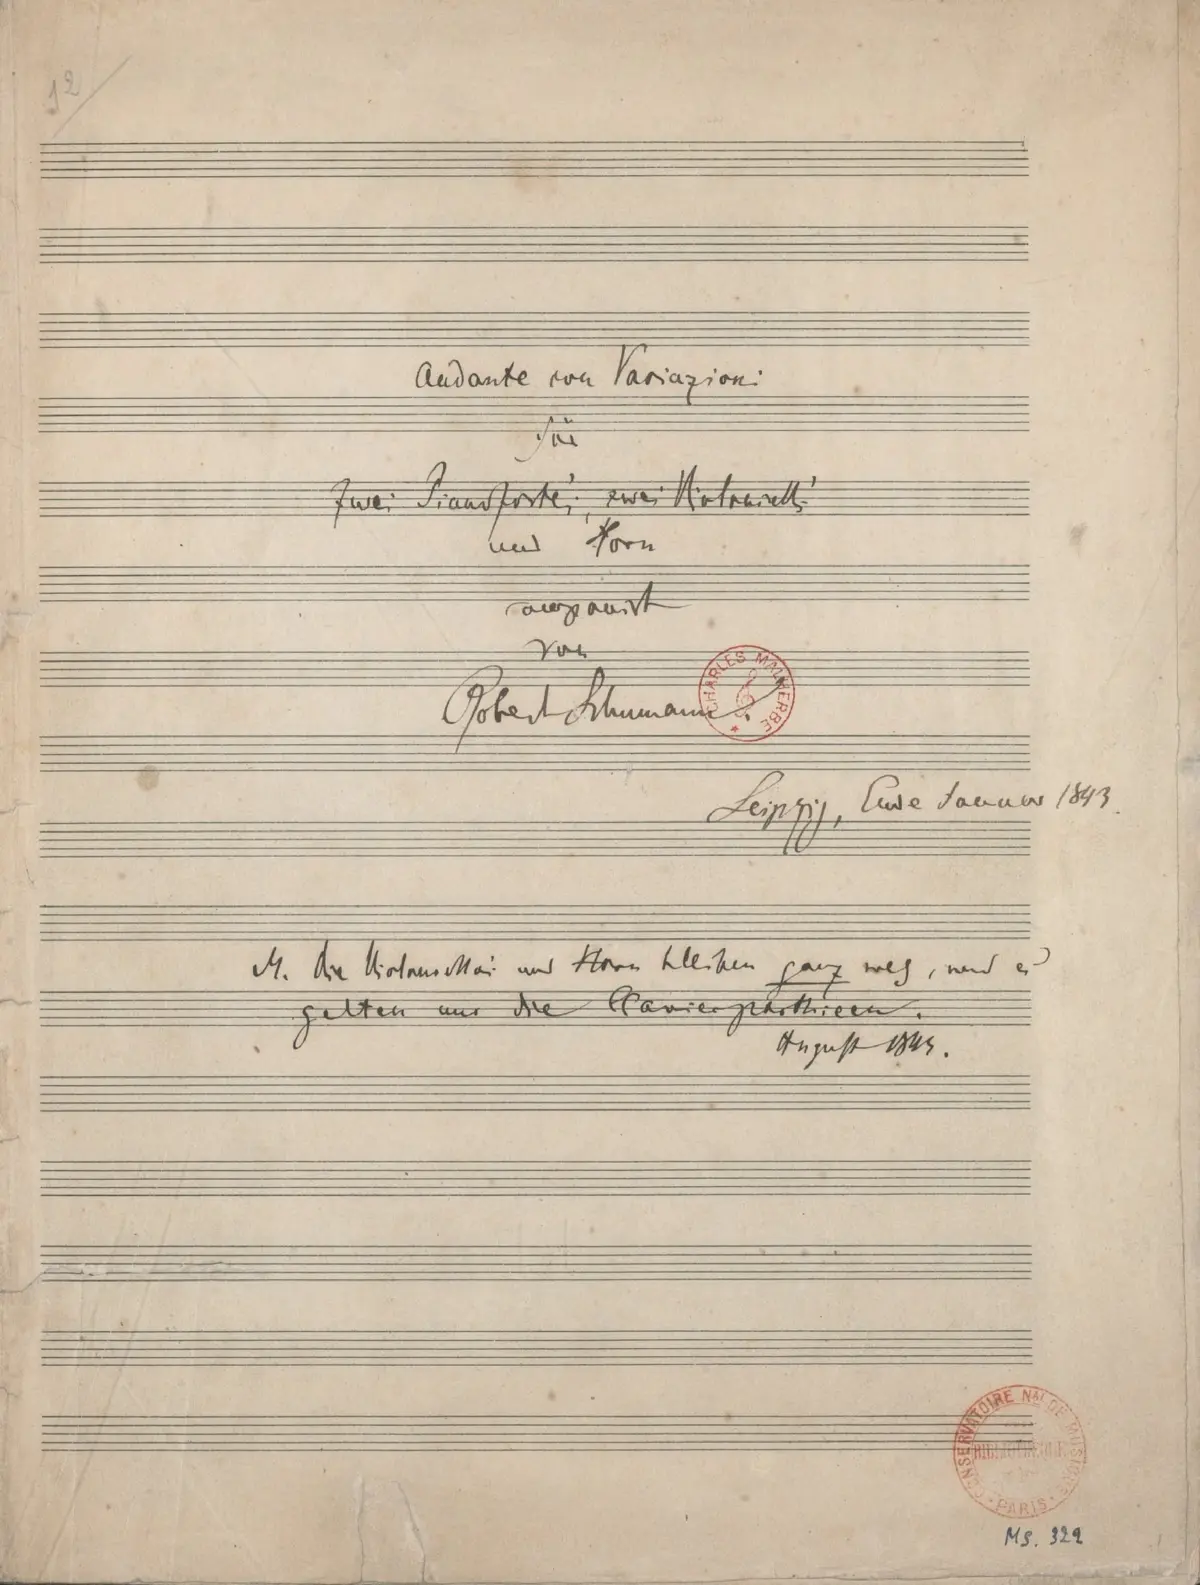 12
Andante con Variazioni
für
zwei Pianoforte's, zwei Violoncell's
und Horn
componirt
von
Robert Schumann.
CHARLES MALHERBE
Leipzig, Ende Januar 1843.
Die Violoncello's und Horn bleiben ganz weg, und es
gelten nur die Clavierparthieen.
August 1843.
CONSERVATOIRE NAL DE MUSIQUE
BIBLIOTHÈQUE
PARIS
Ms. 329